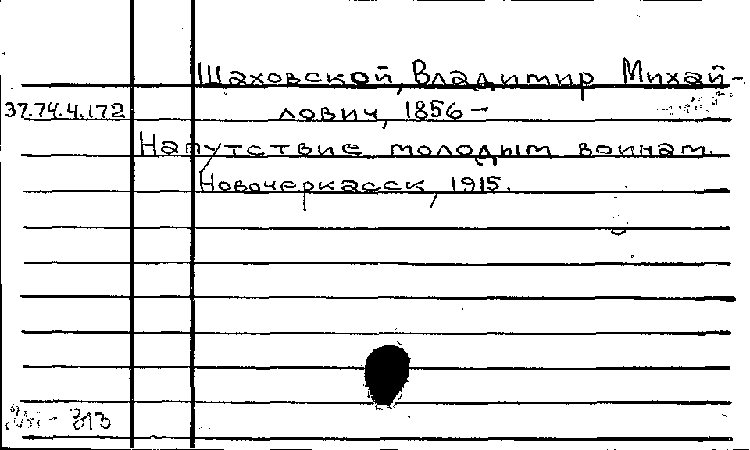 Шаховской, Владимир Михай-
37.74.4.172 лович, 1856-
Напутствие молодым воинам.
Новочеркасск, 1915.
313